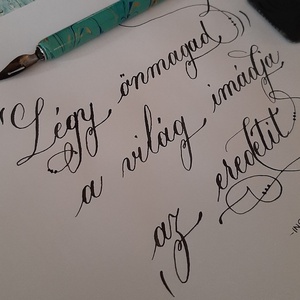 "Légy önmagad,
a világ imádja
az eredetit